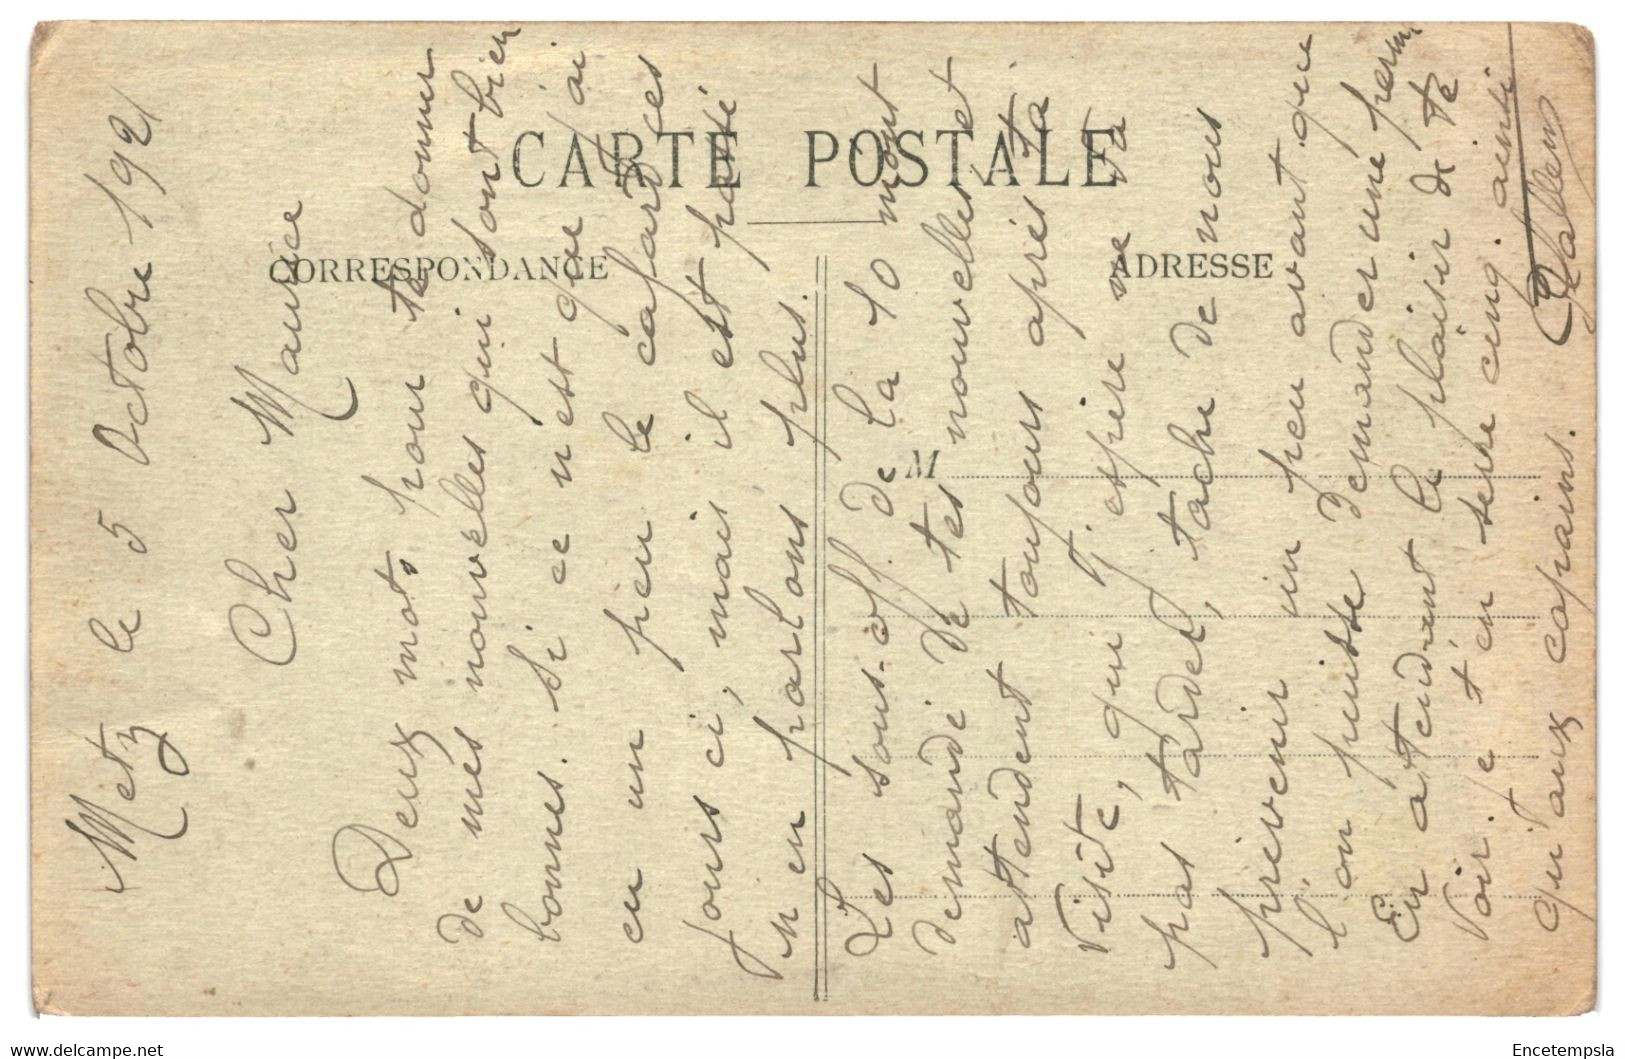 CARTE POSTALE
CORRESPONDANCE
ADRESSE
M
Metz le 5 Octobre 1921
Cher Maurice
Deux mots pour te donner
de mes nouvelles qui sont bien
bonnes. Si ce n'est que j'ai
eu un peu le cafard ces
jours ci, mais il est passé
n'en parlons plus.
Les sous-off de la 10 m'ont
demandé de tes nouvelles et
attendent toujours après ta
visite, qui j'espère ne va
pas tarder, tache de nous
prévenir un peu avant que
l'on puisse demander une perm
En attendant le plaisir de te
voir. Je t'en serre cinq ainsi
qu'aux copains.
www.delcampe.net
Encetempsla